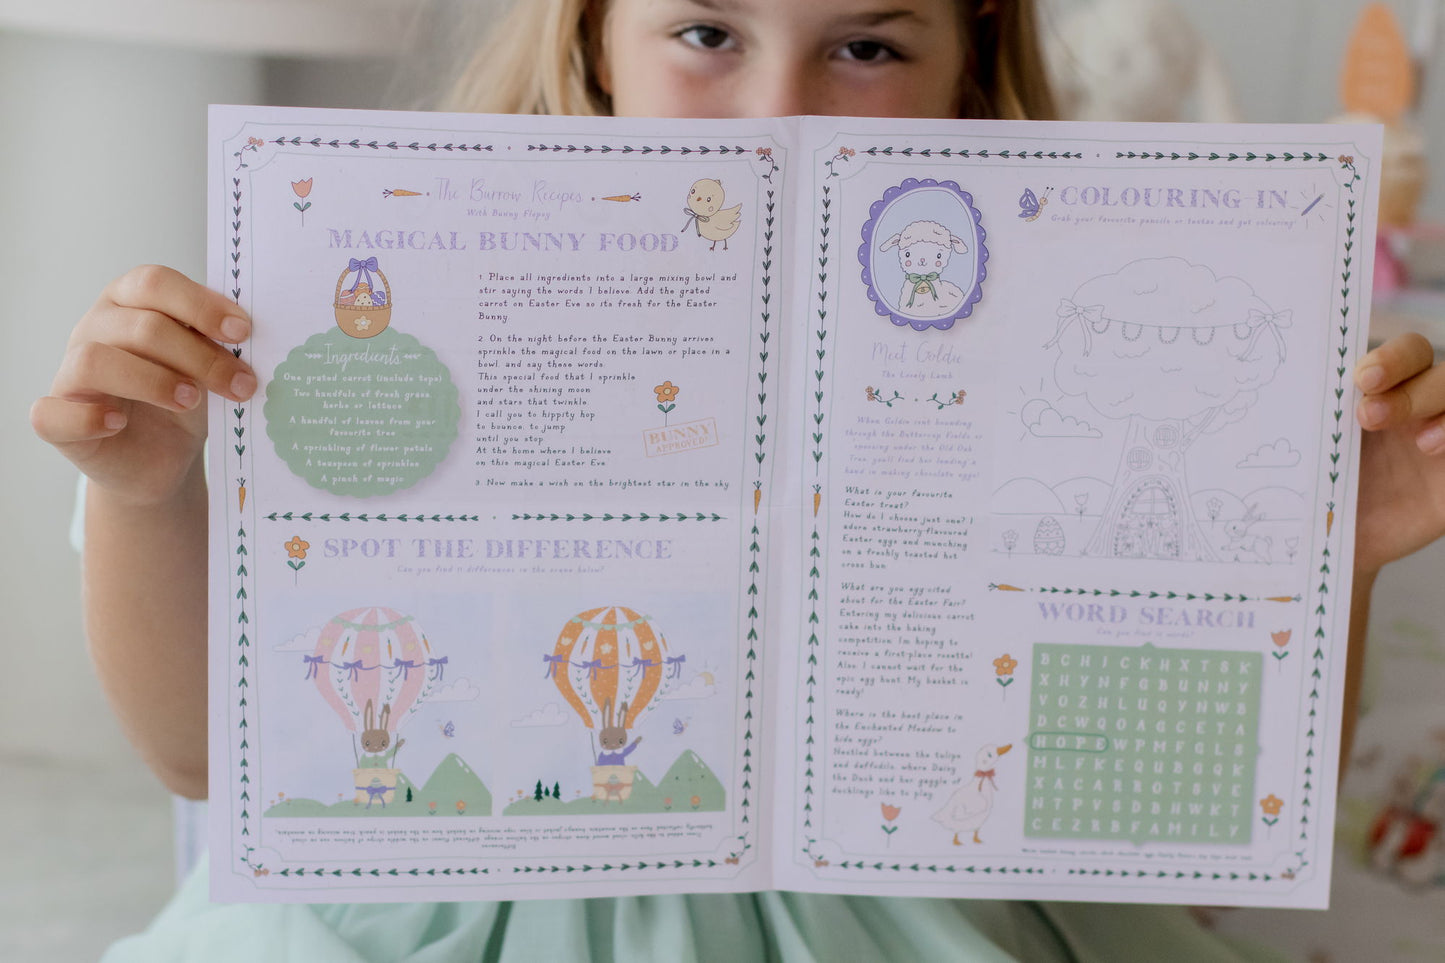 The Burrow Recipes
With Bunny Flopsy
MAGICAL BUNNY FOOD
Ingredients
One grated carrot (include tops)
Two handfuls of fresh grass,
herbs or lettuce
A handful of leaves from your
favourite tree
A sprinkling of flower petals
A teaspoon of sprinkles
A pinch of magic
1. Place all ingredients into a large mixing bowl and
stir saying the words I believe. Add the grated
carrot on Easter Eve so its fresh for the Easter
Bunny.
2. On the night before the Easter Bunny arrives
sprinkle the magical food on the lawn or place in a
bowl, and say these words:
This special food that I sprinkle
under the shining moon
and stars that twinkle.
I call you to hippity hop
to bounce, to jump
until you stop
At the home where I believe
on this magical Easter Eve
3. Now make a wish on the brightest star in the sky
BUNNY
APPROVED!
SPOT THE DIFFERENCE
Can you find 11 differences in the scene below?
Meet Goldie
The Lovely Lamb
When Goldie isnt bounding
through the Buttercup Fields or
snoozing under the Old Oak
Tree, you'll find her lending a
hand in making chocolate eggs!
What is your favourite
Easter treat?
How do I choose just one? I
adore strawberry-flavoured
Easter eggs and munching
on a freshly toasted hot
cross bun.
What are you egg-cited
about for the Easter Fair?
Entering my delicious carrot
cake into the baking
competition. I'm hoping to
receive a first-place rosette!
Also, I cannot wait for the
epic egg hunt. My basket is
ready!
Where is the best place in
the Enchanted Meadow to
hide eggs?
Nestled between the tulips
and daffodils, where Daisy
the Duck and her gaggle of
ducklings like to play.
COLOURING-IN
Grab your favourite pencils or textas and get colouring!
WORD SEARCH
Can you find 10 words?
B C H I C K H X T S K
X H Y N F G B U N N Y
V O Z H L U Q Y N W B
D C W Q O A G C E T A
H O P E W P M F G L S
M L F K E Q U B G Q K
X A C A R R O T S V E
N T P V S D B H W K T
C E Z R B F A M I L Y